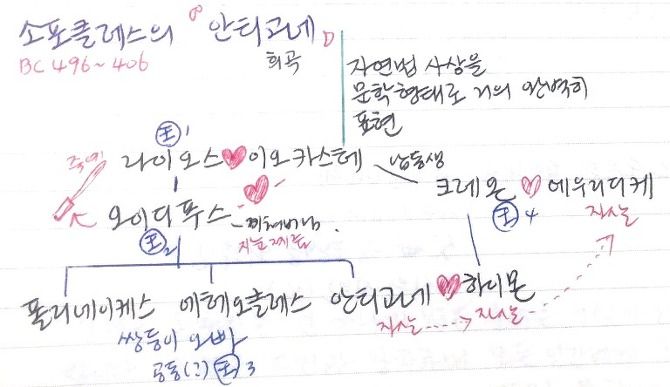 소포클레스의 『안티고네』
BC 496~406
희곡
자연법 사상을
문학형태로 거의 완벽히
표현
왕 1
라이오스 ♥ 이오카스테
남동생
크레온 ♥ 에우리디케
왕 4
자살
오이디푸스
왕 2
폴리네이케스 에테오클레스 안티고네 ♥ 하이몬
쌍둥이 오빠
자살 자살
공동(?) 왕 3